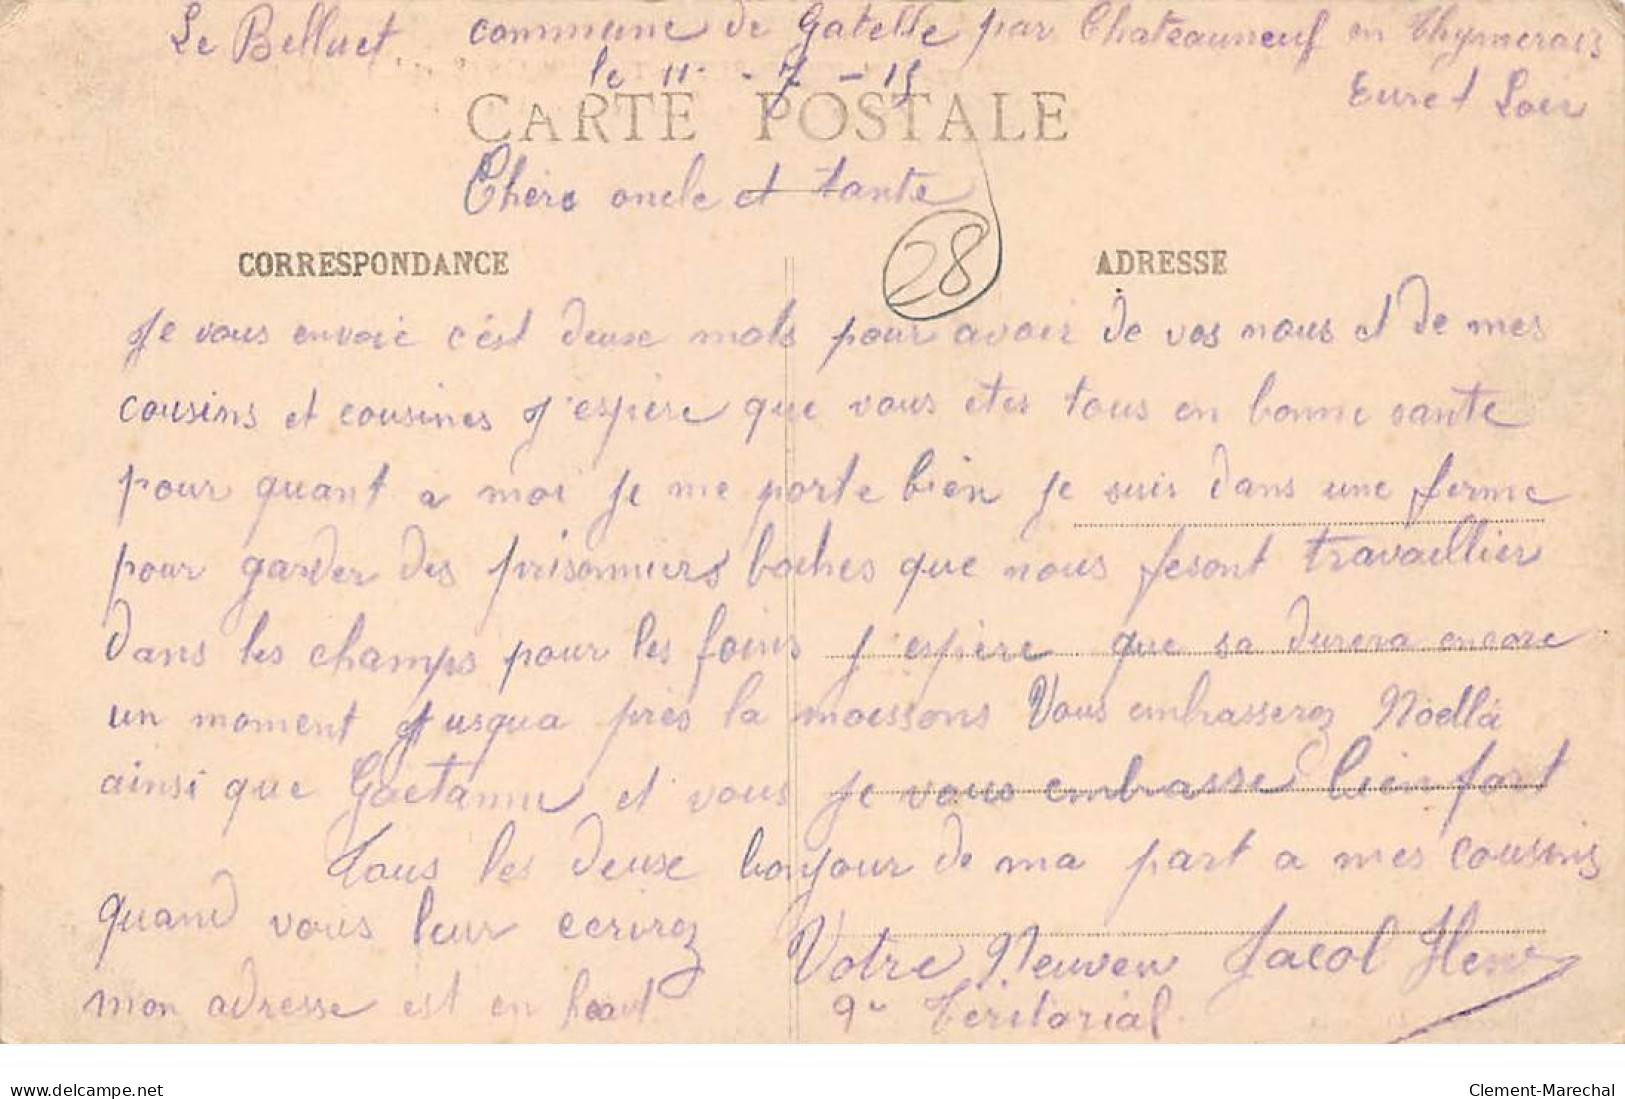 Le Belluet commune de Gatelle par Chateauneuf en Thymerais
le 11 - 7 - 15 Eure et Loir
CARTE POSTALE
Chere oncle et tante
28
CORRESPONDANCE ADRESSE
Je vous envoie c'est deuse mots pour avoir de vos nous et de mes
cousins et cousines J'espere que vous etes tous en bonne sante
pour quant a moi je me porte bien je suis dans une ferme
pour garder des prisonniers boches que nous fesont travaillier
dans les champs pour les foins J'espère que sa durera encore
un moment Jusqua près la moissons Vous embrasserez Noëlla
ainsi que Gaetanne et vous je vous embrasse bien fort
Tous les deuse bonjour de ma part a mes cousins
quand vous leur ecrirez Votre Neuveu Jacob Henri
mon adresse est en haut 9e Teritorial
delcampe.net Clement-Marechal